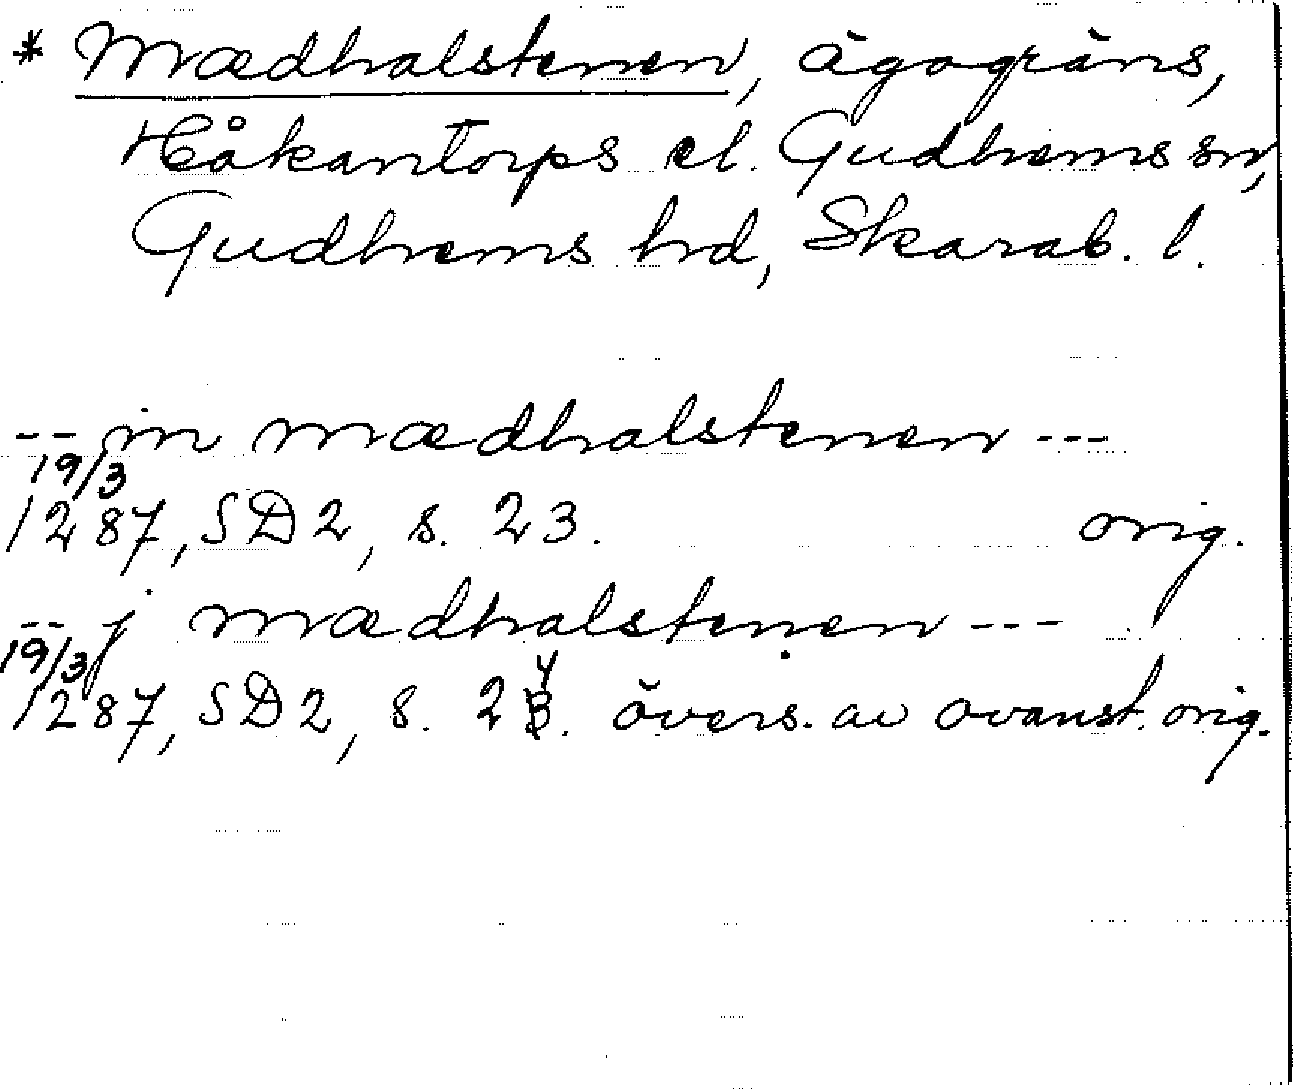 * Mædhalstenen, ägogräns,
Håkantorps el. Gudhems sn,
Gudhems hd, Skarab. l.
-- in mædhalstenen ---
19/3
1287, SD 2, s. 23. orig.
-- j mædhalstenen ---
19/3
1287, SD 2, s. 24. övers. av ovanst. orig.